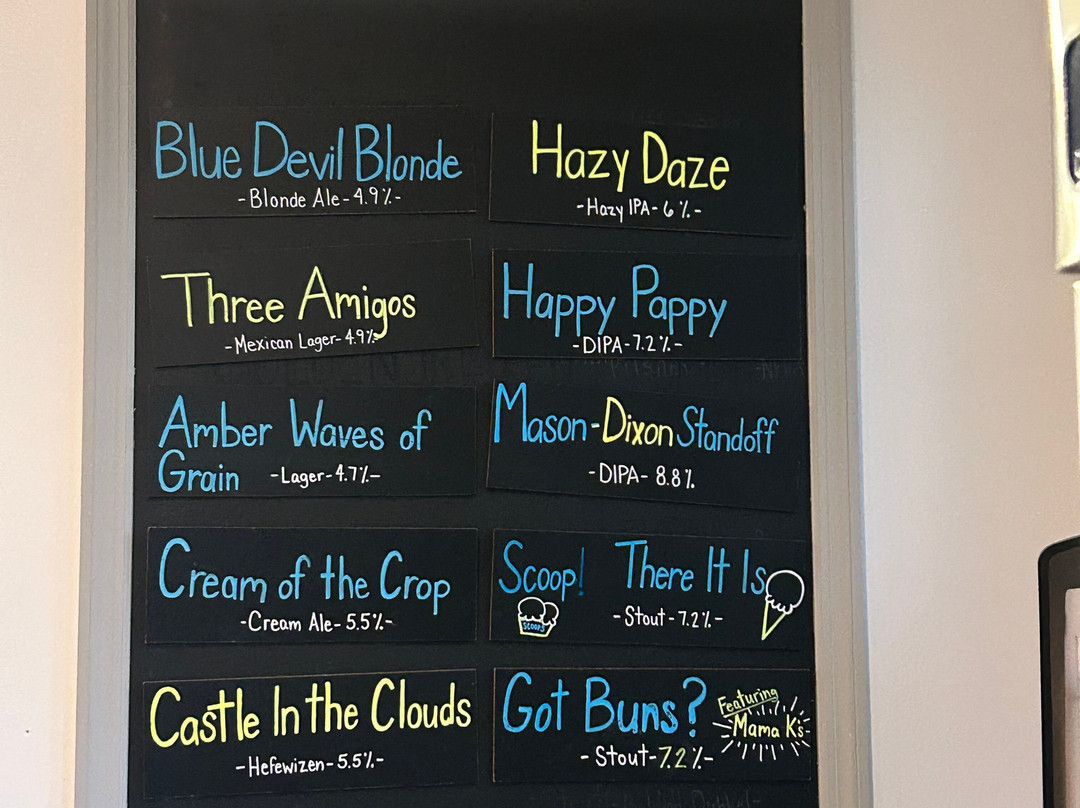 Blue Devil Blonde
-Blonde Ale-4.9%-
Three Amigos
-Mexican Lager-4.9%-
Amber Waves of
Grain -Lager-4.7%-
Cream of the Crop
-Cream Ale-5.5%-
Castle In the Clouds
-Hefewizen-5.5%-
Hazy Daze
-Hazy IPA-6%-
Happy Pappy
-DIPA-7.2%-
Mason-Dixon Standoff
-DIPA-8.8%
Scoop! There It Is
SCOOPS
-Stout-7.2%-
Got Buns?
Featuring
Mama K's
-Stout-7.2%-